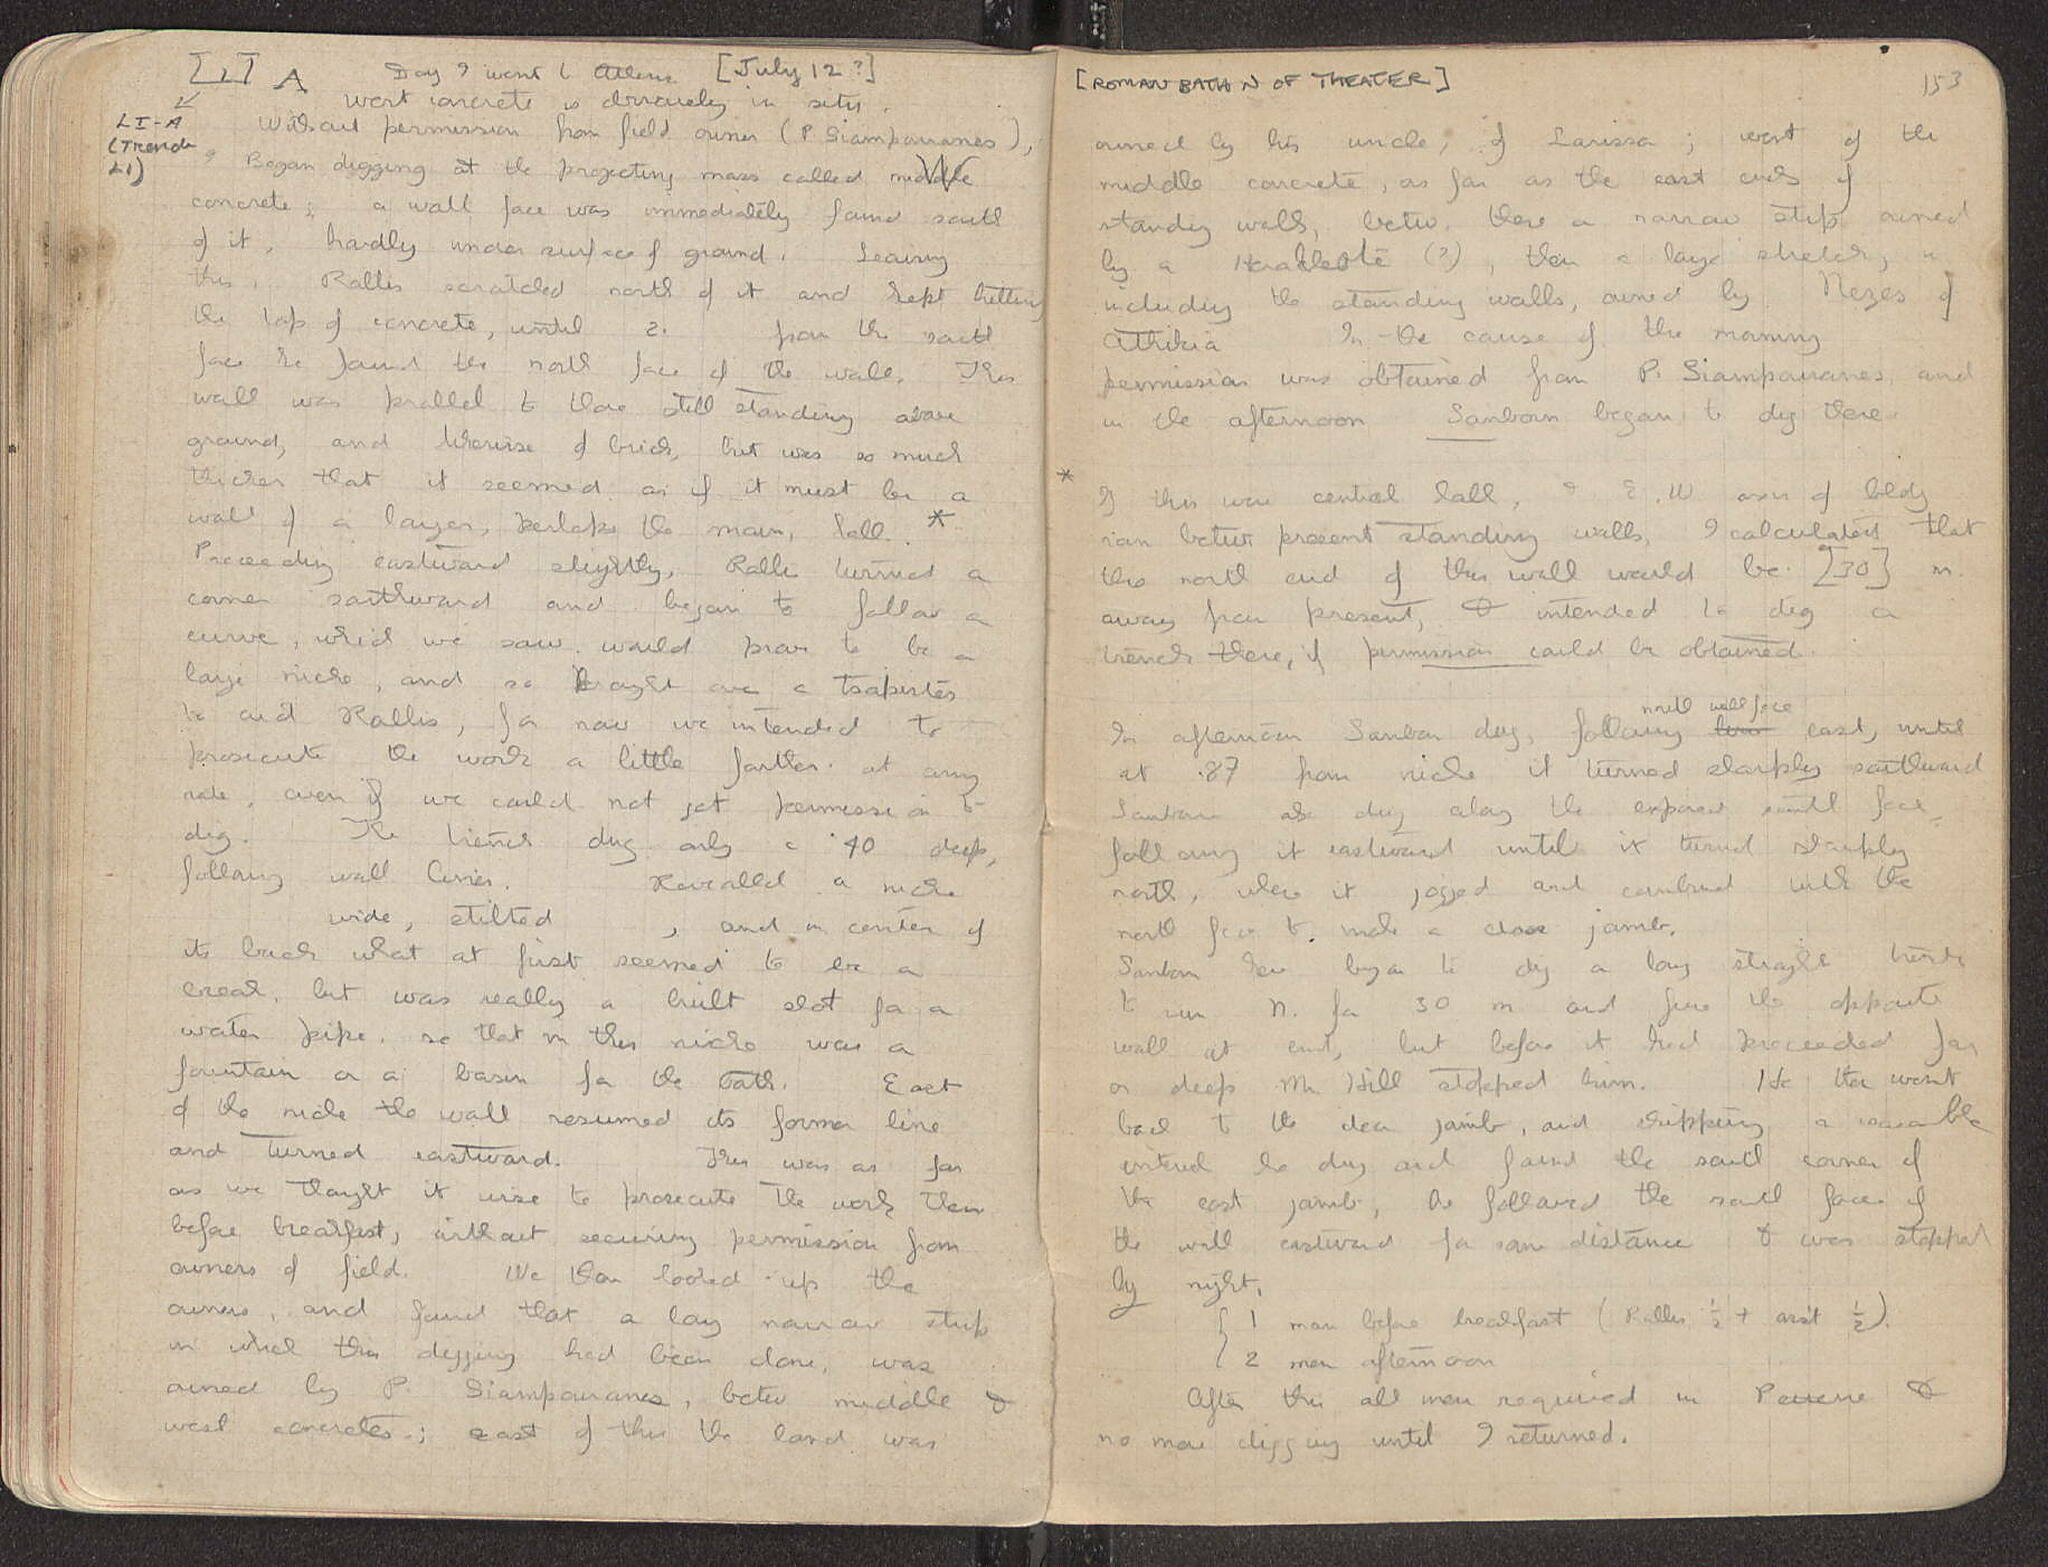 [LI] A Day I went to Athens [July 12?]
West concrete is obviously in situ.
LI-A
(Trench
LI)
Without permission from field owner (P. Siampouranes),
I Began digging at the projecting mass called middle W
concrete; a wall face was immediately found south
of it, hardly under surface of ground. Leaving
this, Rallis scratched north of it and kept hitting
the top of concrete, until 2. from the south
face he found the north face of the wall. This
wall was prallel to those still standing above
ground, and likewise of brick, but was so much
thicker that it seemed as if it must be a
wall of a larger, perhaps the main, hall. *
Proceeding eastward slightly, Rallis turned a
corner southward and began to follow a
curve, which we saw would prove to be a
large niche, and so brought over a tsapistes
to aid Rallis, for now we intended to
prosecute the work a little farther at any
rate, even if we could not get permission to
dig. The trench dug only c .40 deep,
following wall lines. Revealed a niche
wide, stilted , and in center of
its back what at first seemed to be a
break, but was really a built slot for a
water pipe, so that in this niche was a
fountain or a basin for the bath. East
of the niche the wall resumed its former line
and turned eastward. This was as far
as we thought it wise to prosecute the work then
before breakfast, without securing permission from
owners of field. We then looked up the
owners, and found that a long narrow strip
in which this digging had been done, was
owned by P. Siampouranes, betw middle &
west concretes; east of this the land was
[ROMAN BATH N OF THEATER] 153
owned by his uncle, of Larissa; west of the
middle concrete, as far as the east ends of
standing walls, betw. there a narrow strip owned
by a (?), then a large stretch,
including the standing walls, owned by Nezes of
Athikia In the course of the morning
permission was obtained from P. Siampouranes and
in the afternoon Sanborn began to dig there
* If this were central hall, & E.W axis of bldg
ran betw present standing walls, I calculated that
the north end of this wall would be [30] m.
away from present, & intended to dig a
trench there, if permission could be obtained.
In afternoon Sanborn dug, following north wall face east, until
at .87 from niche it turned sharply southward
Sanborn also dug along the exposed south face,
following it eastward until it turned sharply
north, where it jogged and combined with the
north face to make a door jamb.
Sanborn here began to dig a long straight trench
to run N. for 30 m and find the opposite
wall at end, but before it had proceeded far
or deep Mr Hill stopped him. He then went
back to the door jamb, and skipping a reasonable
interval he dug and found the south corner of
the east jamb, he followed the south face of
the wall eastward for some distance & was stopped
by night.
{ 1 man before breakfast (Rallis ½ + ass't ½).
{ 2 men afternoon
After this all men required in Peirene &
no more digging until I returned.